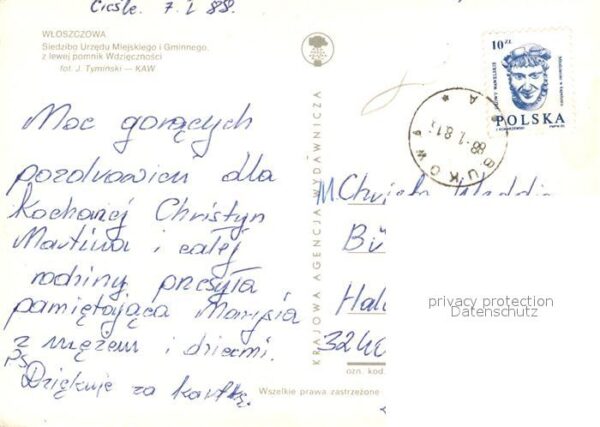 Cieśle. 7.I 88.
WŁOSZCZOWA
Siedziba Urzędu Miejskiego i Gminnego,
z lewej pomnik Wdzięczności
fot. J. Tymiński — KAW
Moc gorących
pozdrowień dla
Kochanej Christyn
Martina i całej
rodziny przesyła
pamiętająca Marysia
z mężem i dziećmi.
PS
Dziękuję za kartkę.
KRAJOWA AGENCJA WYDAWNICZA
10 ZŁ
POLSKA
BUKOW
A
88-1-81
M.
Bü
Hal
324
ozn. kod.
privacy protection
Datenschutz
Wszelkie prawa zastrzeżone